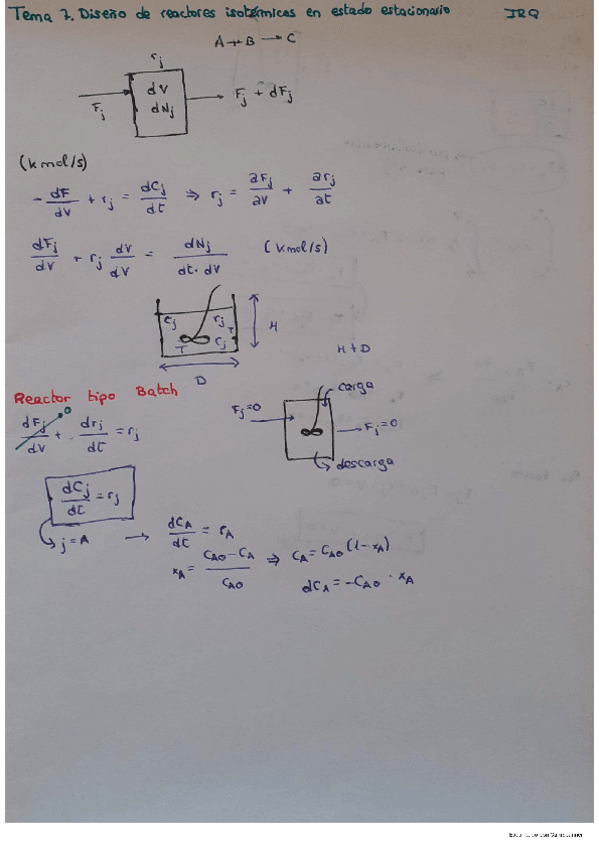 Tema 7. Diseño de reactores isotérmicos en estado estacionario IRQ
A + B → C
rj
Fj dV dNj Fj + dFj
(kmol/s)
- dF/dV + rj = dCj/dt ⇒ rj = ∂Fj/∂V + ∂rj/∂t
dFj/dV + rj dV/dV = dNj/dt·dV (kmol/s)
Cj rj T H
T Cj
H+D
D
Reactor tipo Batch
carga
Fj=0 Fj=0
descarga
dFj/dV 0 + · drj/dt = rj
dCj/dt = rj
j=A → dCA/dt = rA
xA = CA0-CA/CA0 ⇒ CA = CA0 (1-xA)
dCA = -CA0 · xA